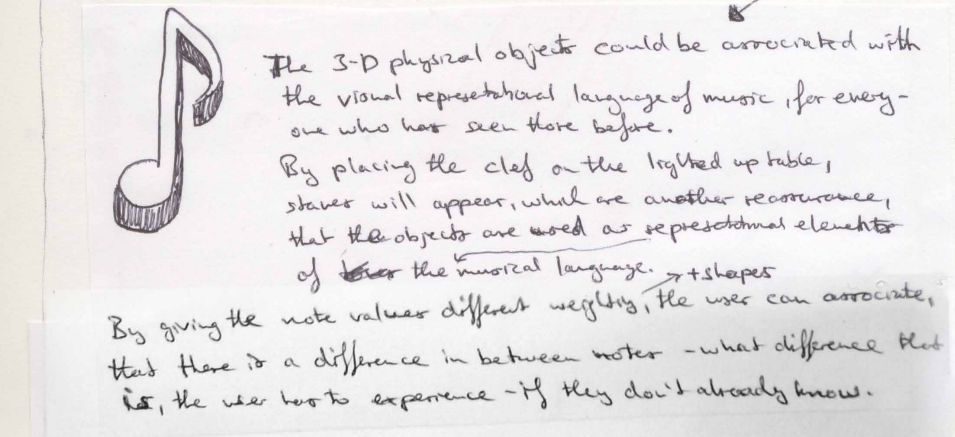 The 3-D physical objects could be associated with
the visual represetational language of music, for every-
one who has seen those before.
By placing the clef on the lighted up table,
staves will appear, which are another reassurance,
that the objects are used as representional elements
of the musical language. → + shapes
By giving the note values different weights, the user can associate,
that there is a difference in between notes - what difference that
is, the user has to experience - if they don't already know.